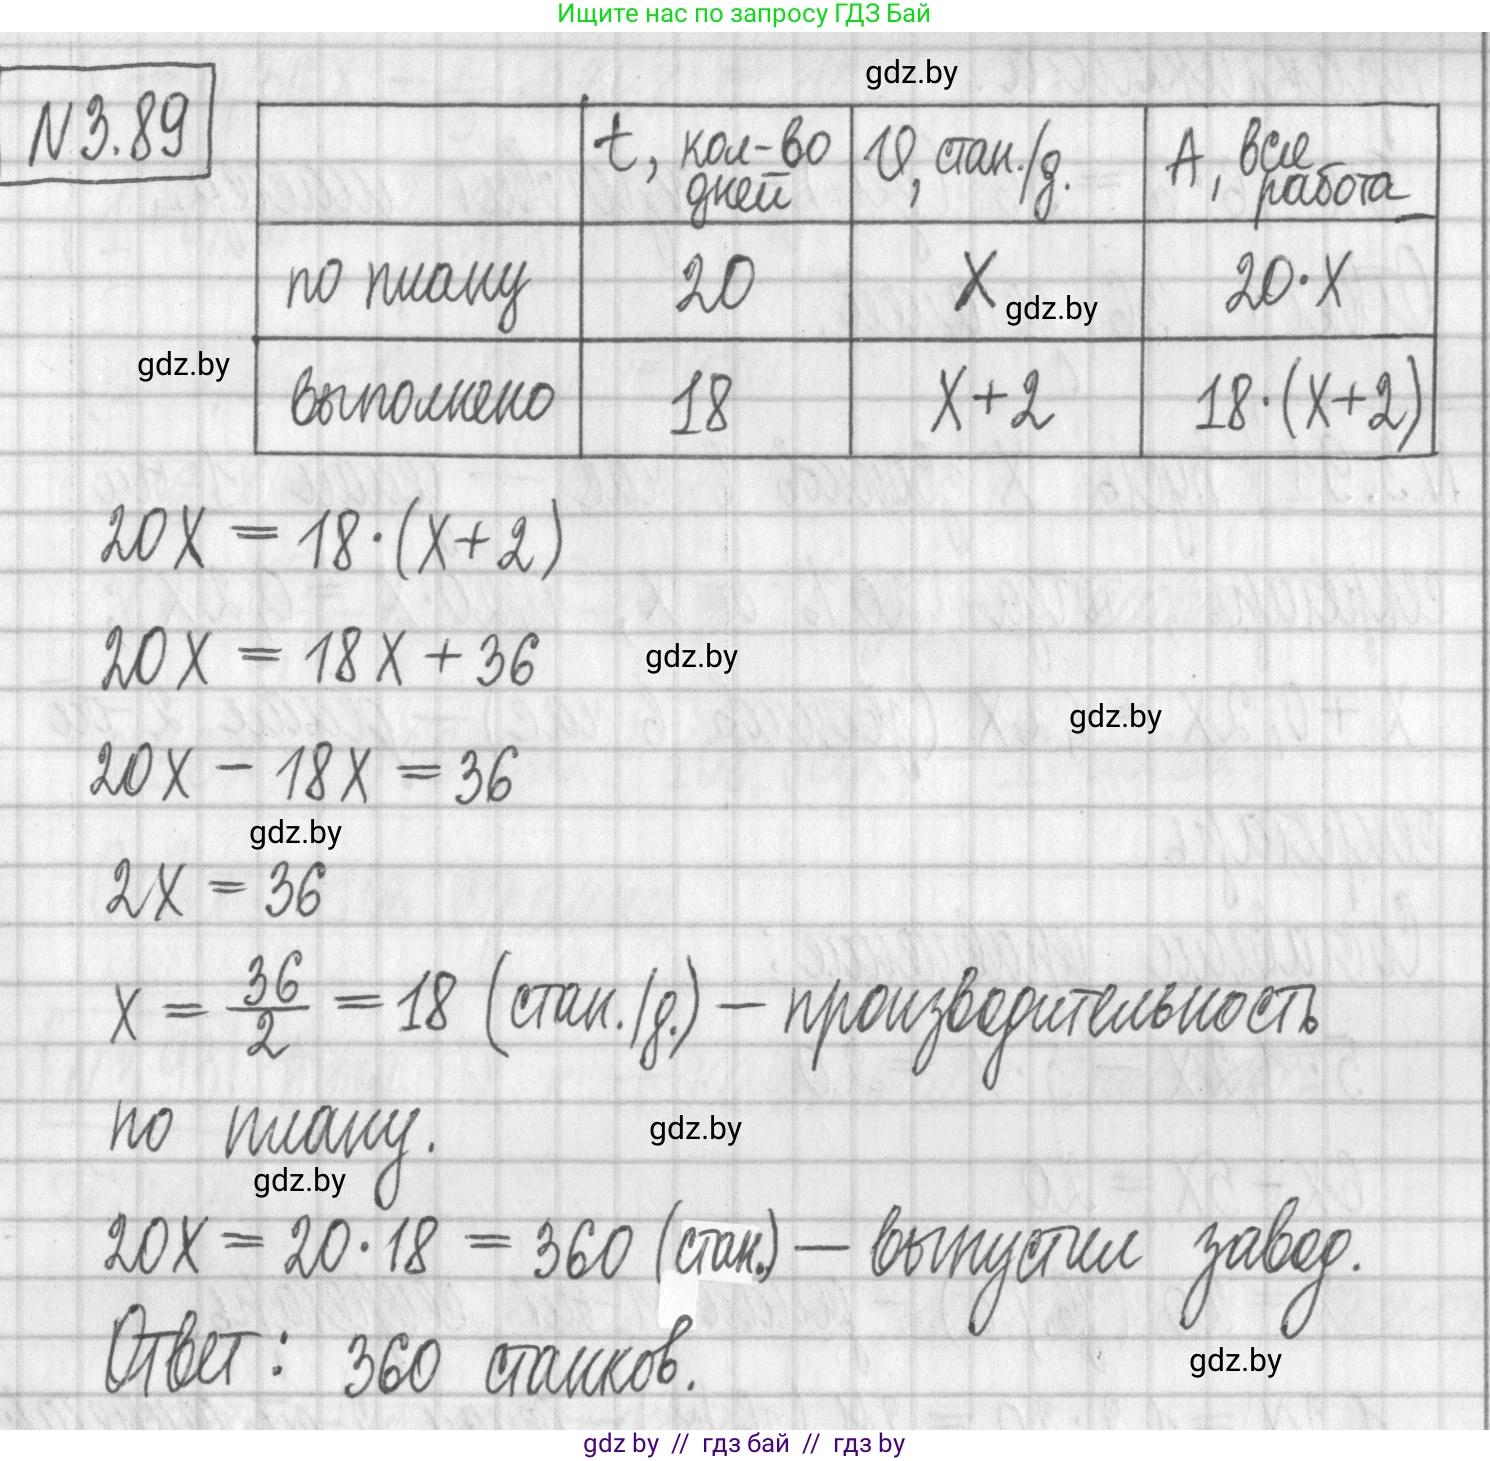 Ищите нас по запросу ГДЗ Бай
gdz.by
N3.89
t, кол-во дней
V, стан./д.
A, вся работа
по плану
20
X
20·X
gdz.by
gdz.by
выполнено
18
X+2
18·(X+2)
20X = 18·(X+2)
20X = 18X + 36
gdz.by
gdz.by
20X - 18X = 36
gdz.by
2X = 36
X = 36/2 = 18 (стан./д.) — производительность
по плану.
gdz.by
gdz.by
20X = 20·18 = 360 (стан.) — выпустил завод.
Ответ: 360 станков.
gdz.by
gdz by // гдз бай // гдз by